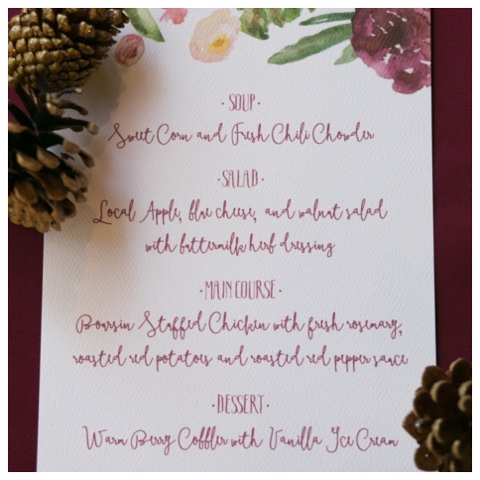 · SOUP ·
Sweet Corn and Fresh Chili Chowder
· SALAD ·
Local Apple, blue cheese, and walnut salad
with buttermilk herb dressing
· MAIN COURSE ·
Boursin Stuffed Chicken with fresh rosemary,
roasted red potatoes and roasted red pepper sauce
· DESSERT ·
Warm Berry Cobbler with Vanilla Ice Cream